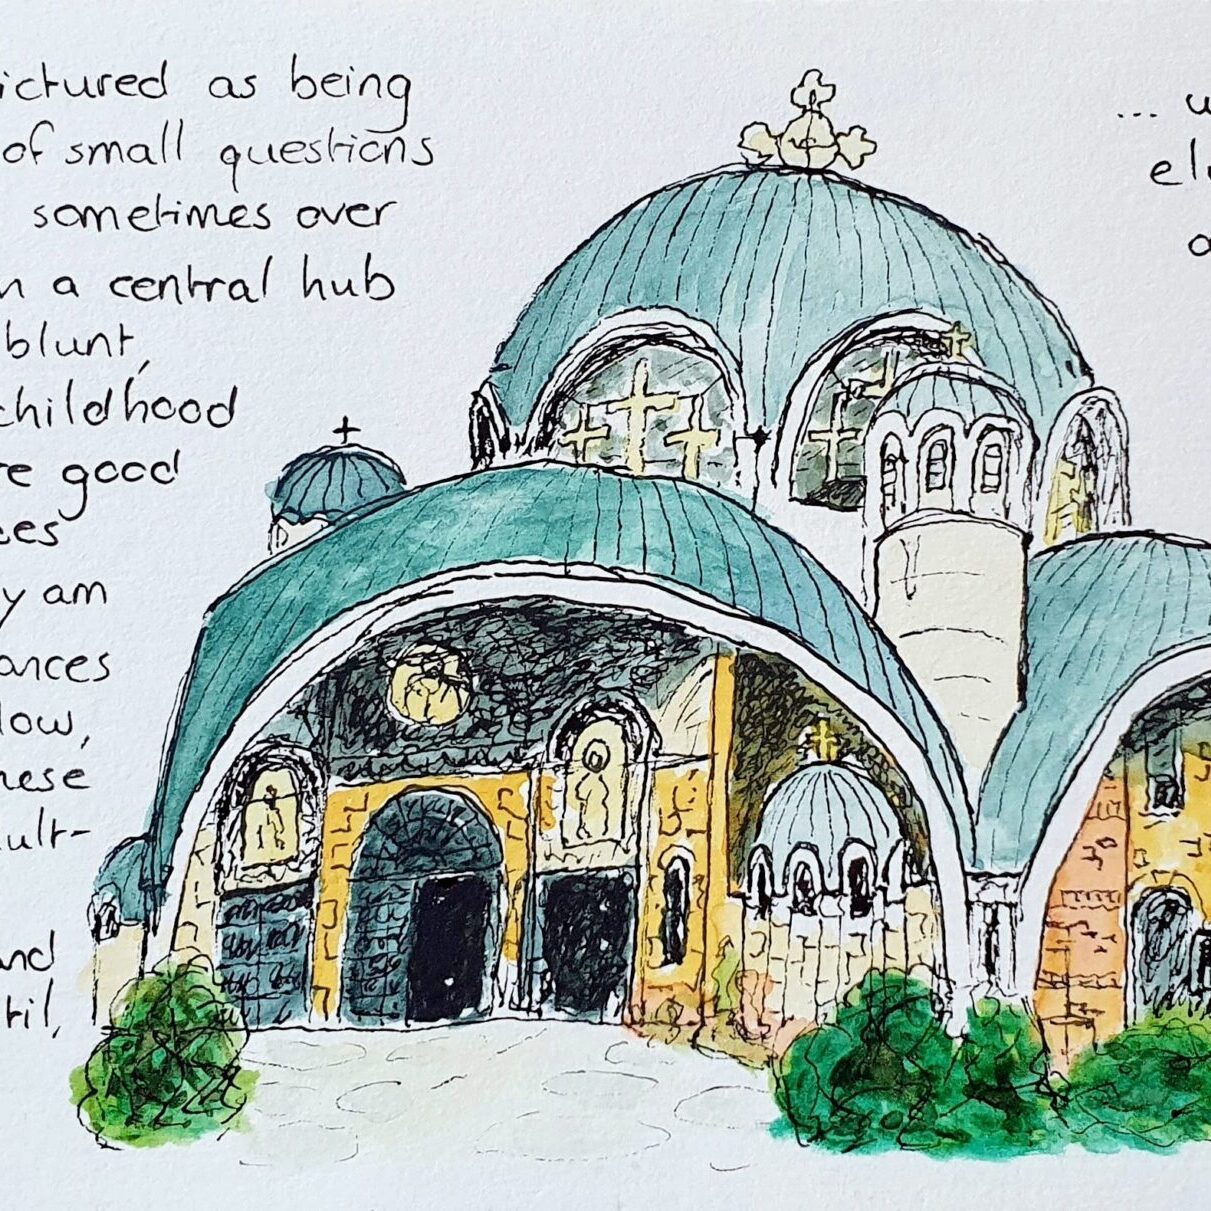 ictured as being
of small questions
sometimes over
n a central hub
blunt,
childhood
re good
ces
y am
ances
low,
hese
ult-
and
til,
... u
el
a